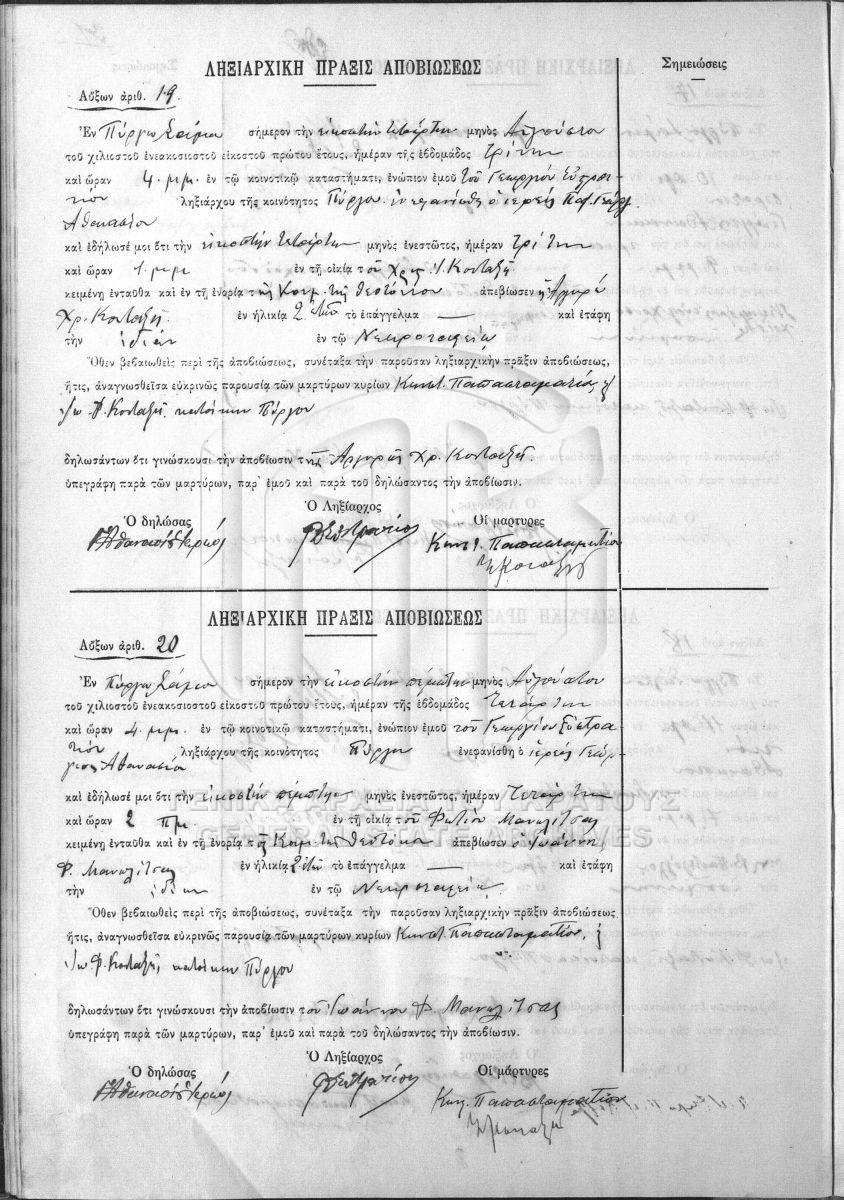 ΛΗΞΙΑΡΧΙΚΗ ΠΡΑΞΙΣ ΑΠΟΒΙΩΣΕΩΣ
Σημειώσεις
Αὔξων ἀριθ. 19.
Ἐν Πύργῳ Σάμου σήμερον τὴν εἰκοστὴν τετάρτην μηνὸς Αὐγούστου
τοῦ χιλιοστοῦ ἐνεακοσιοστοῦ εἰκοστοῦ πρώτου ἔτους, ἡμέραν τῆς ἑβδομάδος Τρίτην
καὶ ὥραν 4 μ.μ. ἐν τῷ κοινοτικῷ καταστήματι, ἐνώπιον ἐμοῦ τοῦ Γεωργίου Εὐστρα-
τίου ληξιάρχου τῆς κοινότητος Πύργου ἐνεφανίσθη ὁ ἱερεὺς Γεώργ.
Ἀθανασίου
καὶ ἐδήλωσέ μοι ὅτι τὴν εἰκοστὴν τετάρτην μηνὸς ἐνεστῶτος, ἡμέραν Τρίτην
καὶ ὥραν 1 μ.μ. ἐν τῇ οἰκίᾳ τοῦ Χρ. Κονταξῆ
κειμένῃ ἐνταῦθα καὶ ἐν τῇ ἐνορίᾳ τῆς Κοιμ. τῆς Θεοτόκου ἀπεβίωσεν ἡ Ἀργυρῆ
Χρ. Κονταξῆ ἐν ἡλικίᾳ 2 ἐτῶν τὸ ἐπάγγελμα — καὶ ἐτάφη
τὴν ἰδίαν ἐν τῷ Νεκροταφείῳ
Ὅθεν βεβαιωθεὶς περὶ τῆς ἀποβιώσεως, συνέταξα τὴν παροῦσαν ληξιαρχικὴν πρᾶξιν ἀποβιώσεως,
ἥτις, ἀναγνωσθεῖσα εὐκρινῶς παρουσίᾳ τῶν μαρτύρων κυρίων Κωνστ. Παπασταματίου, καὶ
Ἰω. Φ. Κονταξῆ, κατοίκων Πύργου
δηλωσάντων ὅτι γινώσκουσι τὴν ἀποβίωσιν τῆς Ἀργυρῆς Χρ. Κονταξῆ
ὑπεγράφη παρὰ τῶν μαρτύρων, παρ' ἐμοῦ καὶ παρὰ τοῦ δηλώσαντος τὴν ἀποβίωσιν.
Ὁ δηλώσας Ὁ Ληξίαρχος Οἱ μάρτυρες
Γ. Ἀθανασίου Ἱερεύς Γ. Εὐστρατίου Κωνστ. Παπασταματίου
Ἰ. Κονταξῆς
ΛΗΞΙΑΡΧΙΚΗ ΠΡΑΞΙΣ ΑΠΟΒΙΩΣΕΩΣ
Αὔξων ἀριθ. 20
Ἐν Πύργῳ Σάμου σήμερον τὴν εἰκοστὴν πέμπτην μηνὸς Αὐγούστου
τοῦ χιλιοστοῦ ἐνεακοσιοστοῦ εἰκοστοῦ πρώτου ἔτους, ἡμέραν τῆς ἑβδομάδος Τετάρτην
καὶ ὥραν 4 μ.μ. ἐν τῷ κοινοτικῷ καταστήματι, ἐνώπιον ἐμοῦ τοῦ Γεωργίου Εὐστρα-
τίου ληξιάρχου τῆς κοινότητος Πύργου ἐνεφανίσθη ὁ ἱερεὺς Γεώρ-
γιος Ἀθανασίου
καὶ ἐδήλωσέ μοι ὅτι τὴν εἰκοστὴν πέμπτην μηνὸς ἐνεστῶτος, ἡμέραν Τετάρτην
καὶ ὥραν 2 πμ ἐν τῇ οἰκίᾳ τοῦ Φωτίου Μανωλίτσα
κειμένῃ ἐνταῦθα καὶ ἐν τῇ ἐνορίᾳ τῆς Κοιμ. τῆς Θεοτόκου ἀπεβίωσεν ὁ Ἰωάννη
Φ. Μανωλίτσας ἐν ἡλικίᾳ 2 ἐτῶν τὸ ἐπάγγελμα — καὶ ἐτάφη
τὴν ἰδίαν ἐν τῷ Νεκροταφείῳ
Ὅθεν βεβαιωθεὶς περὶ τῆς ἀποβιώσεως, συνέταξα τὴν παροῦσαν ληξιαρχικὴν πρᾶξιν ἀποβιώσεως,
ἥτις, ἀναγνωσθεῖσα εὐκρινῶς παρουσίᾳ τῶν μαρτύρων κυρίων Κωνστ. Παπασταματίου, καὶ
Ἰω. Φ. Κονταξῆ, κατοίκων Πύργου
δηλωσάντων ὅτι γινώσκουσι τὴν ἀποβίωσιν τοῦ Ἰωάννου Φ. Μανωλίτσα
ὑπεγράφη παρὰ τῶν μαρτύρων, παρ' ἐμοῦ καὶ παρὰ τοῦ δηλώσαντος τὴν ἀποβίωσιν.
Ὁ δηλώσας Ὁ Ληξίαρχος Οἱ μάρτυρες
Γ. Ἀθανασίου Ἱερεύς Γ. Εὐστρατίου Κων. Παπασταματίου
Ἰ. Κονταξῆς
ΓΕΝΙΚΑ ΑΡΧΕΙΑ ΤΟΥ ΚΡΑΤΟΥΣ
GENERAL STATE ARCHIVES